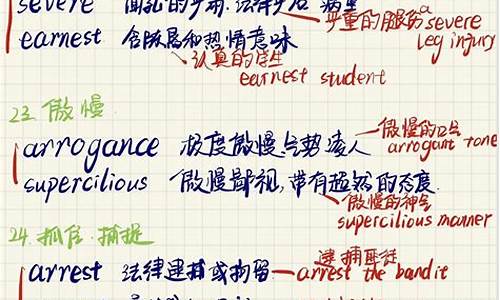 severe
严重的腿伤 a severe
leg injury
earnest 含脓厚和热情意味
认真的学生
earnest student
23. 傲慢
arrogance 极度傲慢,气势凌人
傲慢的口气
arrogant tone
supercilious 傲慢鄙视,带有超然的态度.
傲慢的神气
supercilious manner
24. 抓住.捕捉
arrest 法律逮捕或拘留
逮捕匪徒
arrest the bandit